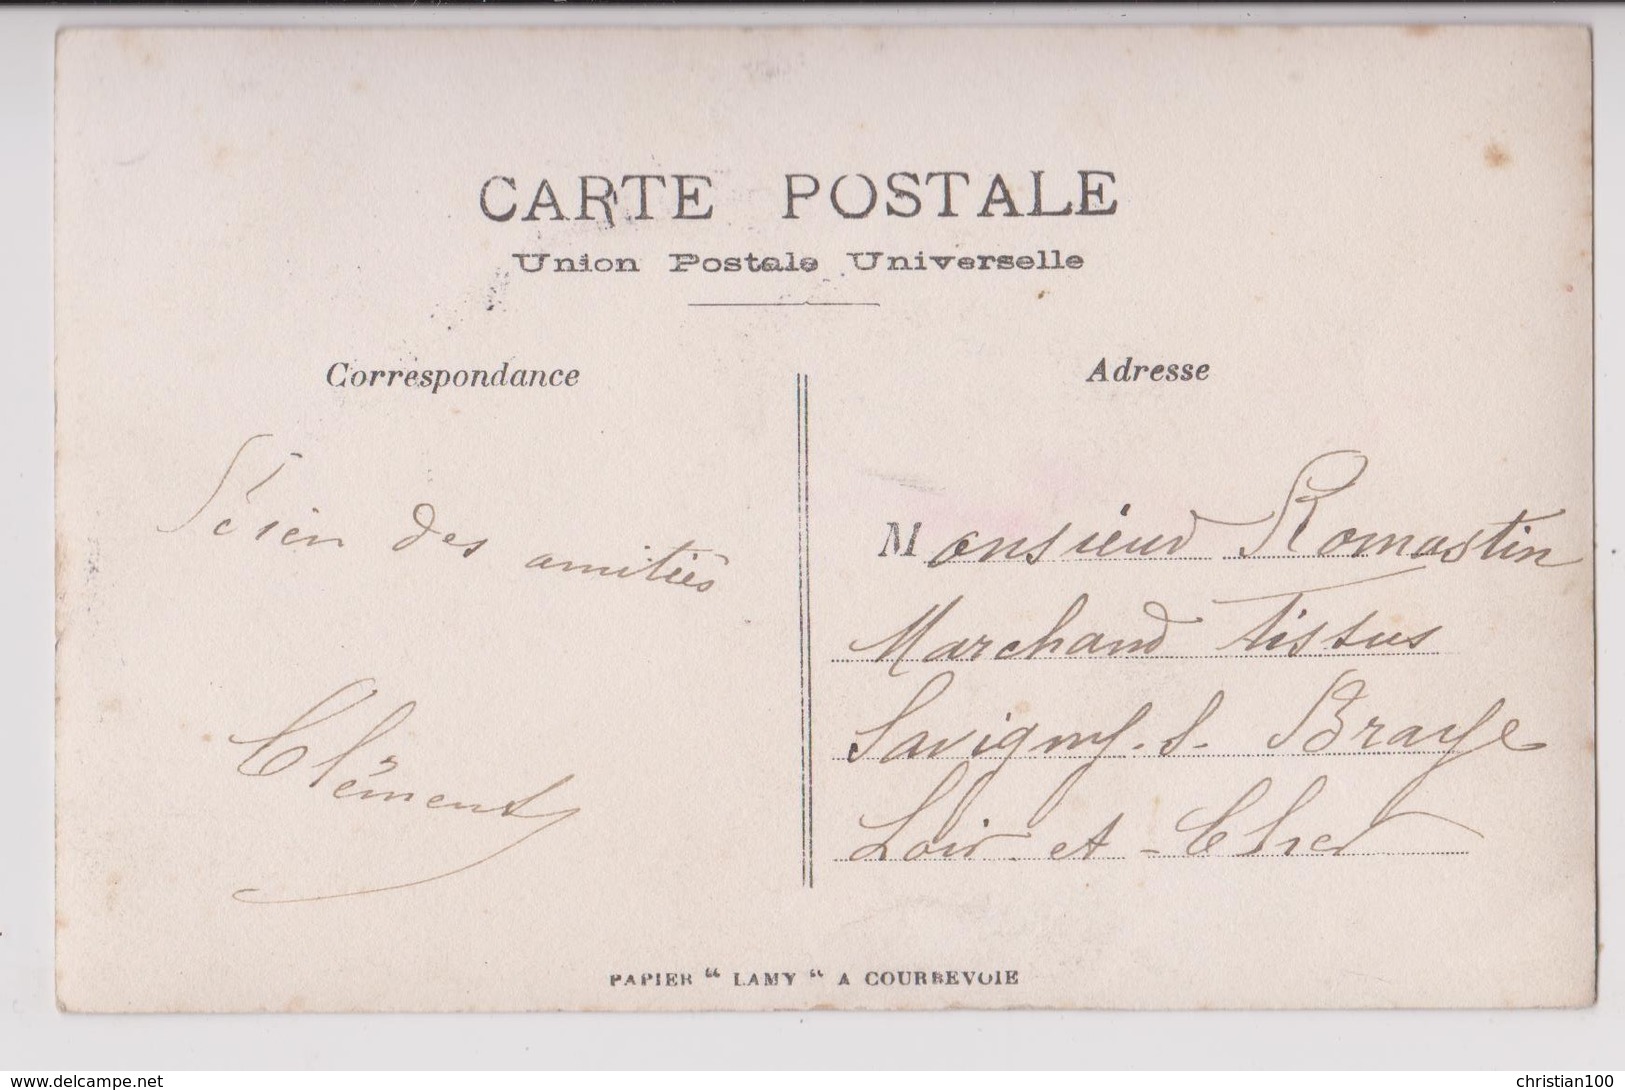 CARTE POSTALE
Union Postale Universelle
Correspondance
Bien des amitiés
Clément
Adresse
Monsieur Romastin
Marchand tissus
Savigny. s. Braye
Loir et - Cher
PAPIER “ LAMY “ A COURBEVOIE
www.delcampe.net
christian100